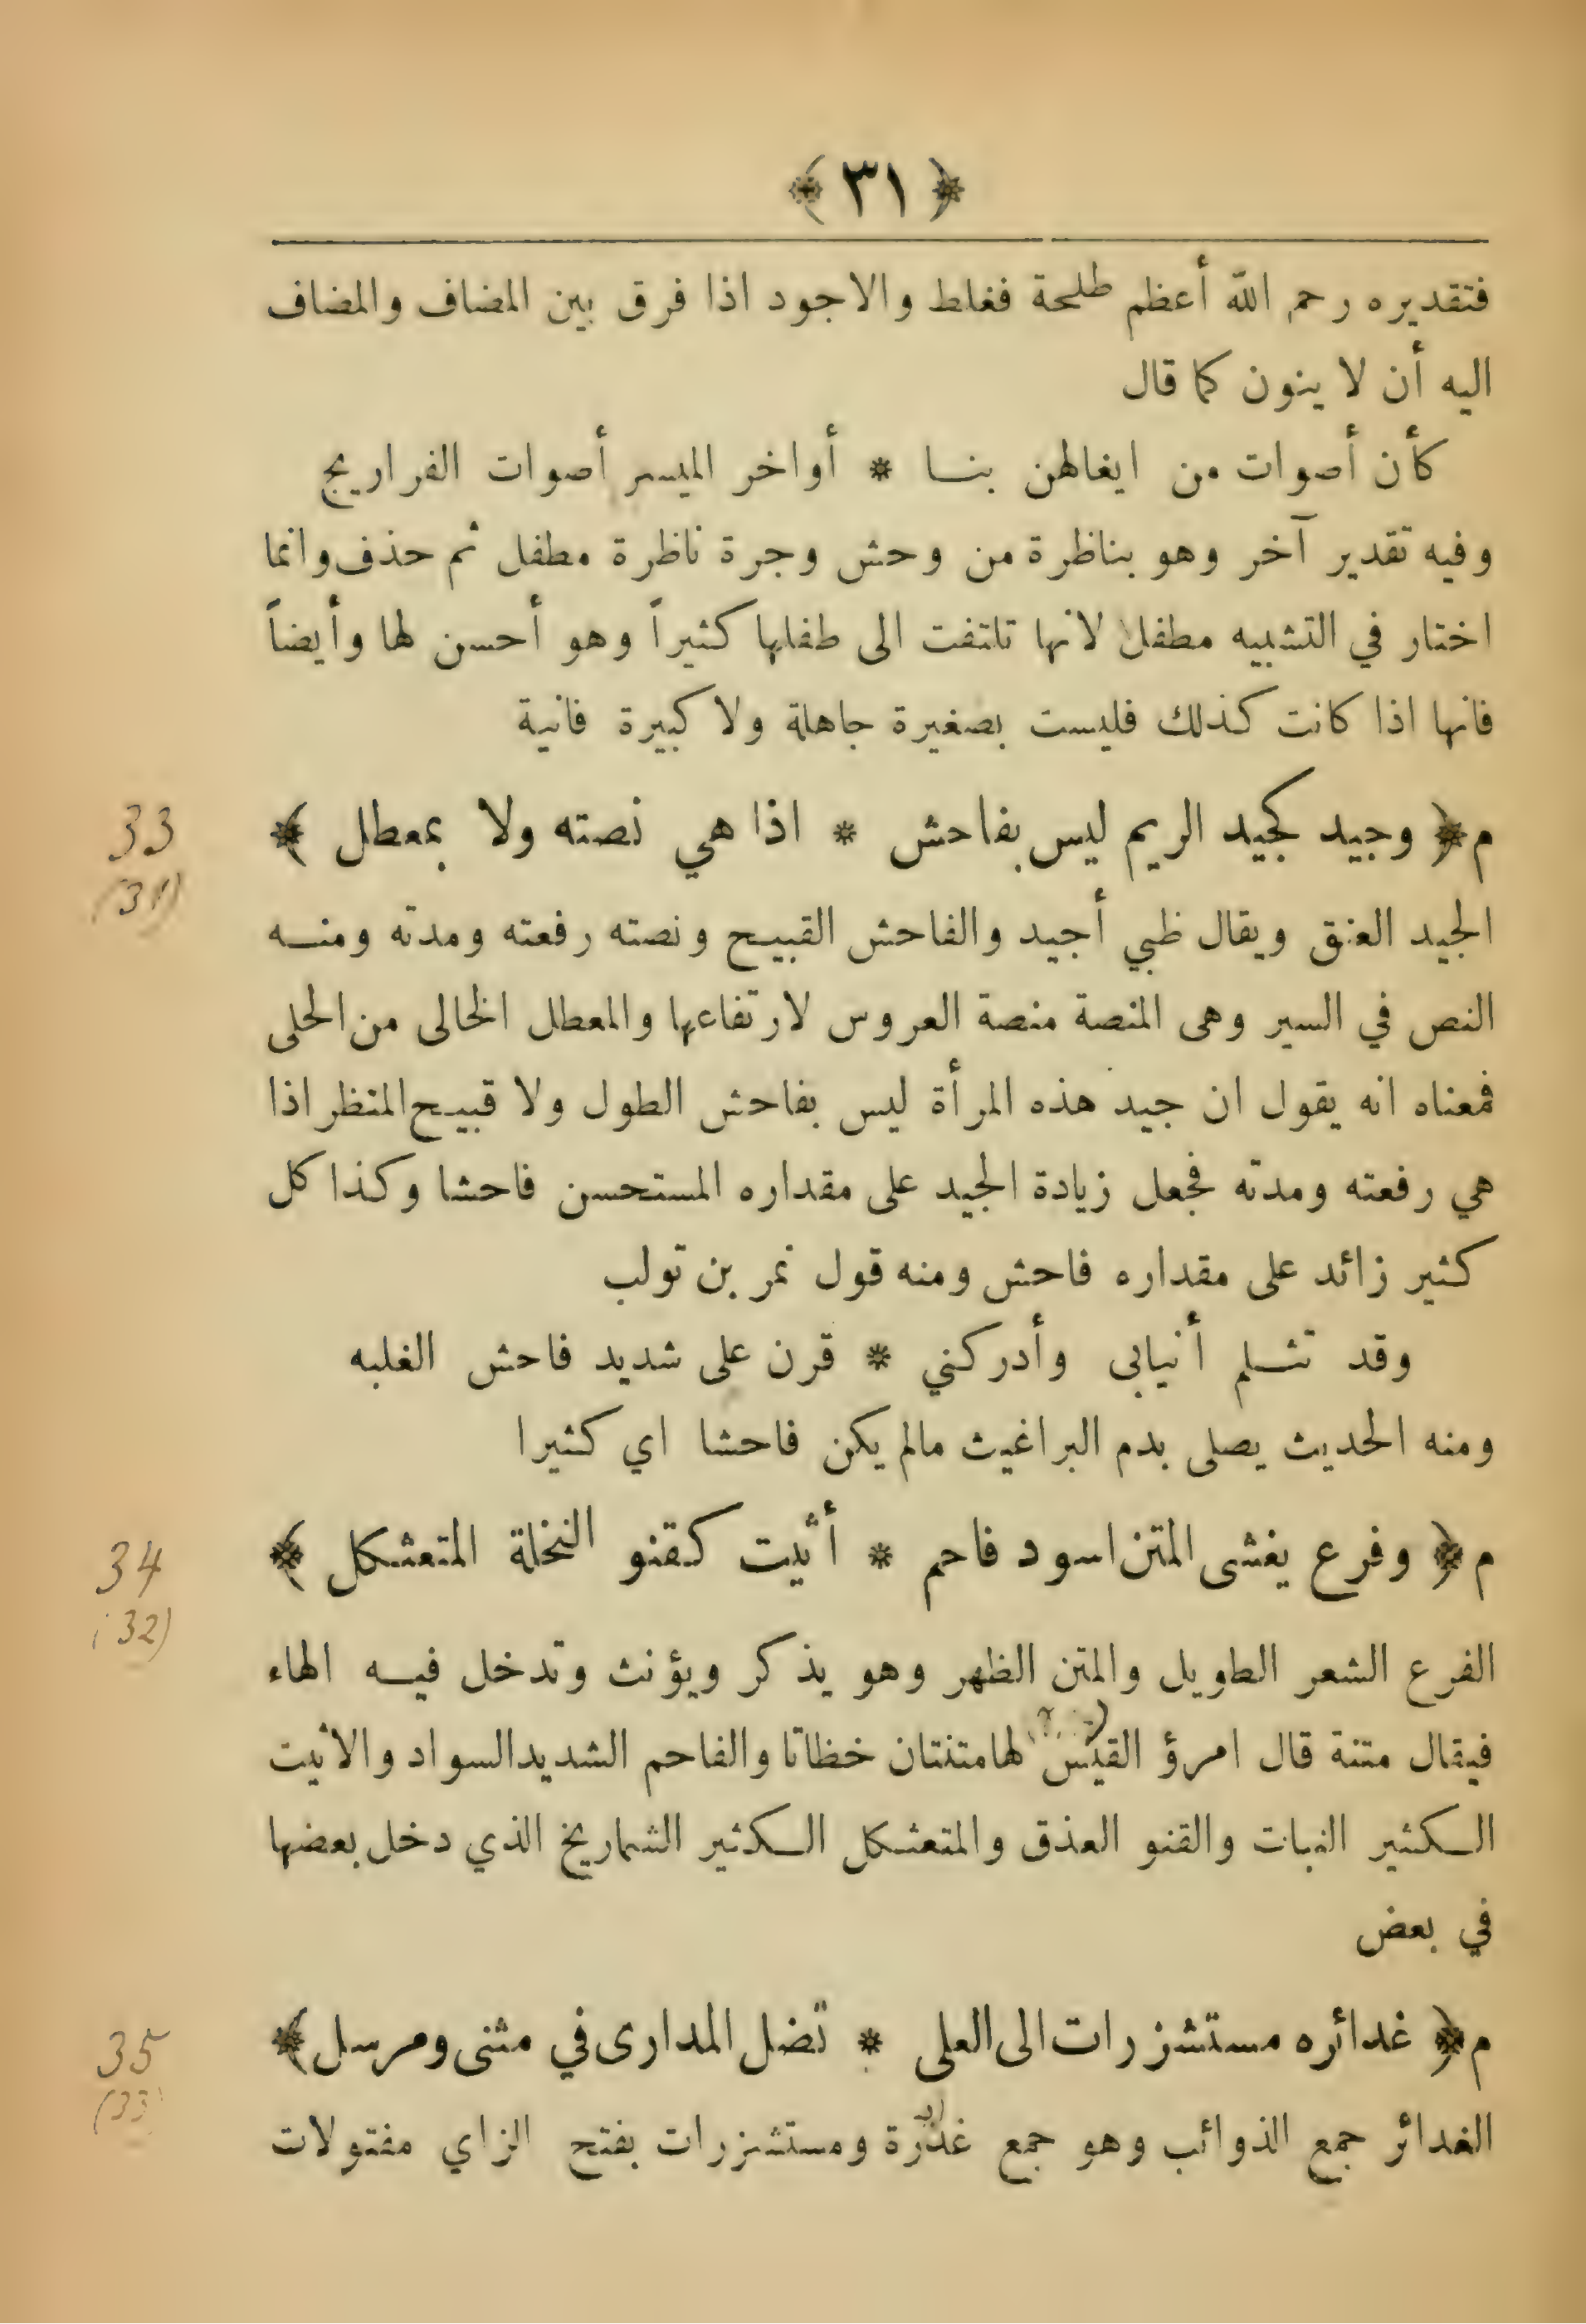 ﴿ ٣١ ﴾
فتقديره رحم الله أعظم طلحة فغلط والاجود اذا فرق بين المضاف والمضاف
اليه أن لا ينون كما قال
كأن أصوات من ايغالهن بنا * أواخر الميسر أصوات الفراريج
وفيه تقدير آخر وهو بناظرة من وحش وجرة ناظرة مطفل ثم حذف وانما
اختار في التشبيه مطفلا لانها تلتفت الى طفلها كثيراً وهو أحسن لها وأيضاً
فانها اذا كانت كذلك فليست بصغيرة جاهلة ولا كبيرة فانية
م ﴿ وجيد كجيد الريم ليس بفاحش * اذا هي نصته ولا بمعطل ﴾
33
(31)
الجيد العنق ويقال ظبي أجيد والفاحش القبيح ونصته رفعته ومدته ومنه
النص في السير وهى المنصة منصة العروس لارتفاعها والمعطل الخالى من الحلى
فمعناه انه يقول ان جيد هذه المرأة ليس بفاحش الطول ولا قبيح المنظر اذا
هي رفعته ومدته فجعل زيادة الجيد على مقداره المستحسن فاحشا وكذا كل
كثير زائد على مقداره فاحش ومنه قول نمر بن تولب
وقد تثلم أنيابى وأدركني * قرن على شديد فاحش الغلبه
ومنه الحديث يصلى بدم البراغيث مالم يكن فاحشا اي كثيرا
م ﴿ وفرع يغشى المتن اسود فاحم * أثيت كقنو النخلة المتعثكل ﴾
34
(32)
الفرع الشعر الطويل والمتن الظهر وهو يذكر ويؤنث وتدخل فيه الهاء
فيقال متنة قال امرؤ القيس لهامتنتان خظاتا والفاحم الشديدالسواد والاثيت
الكثير النبات والقنو العذق والمتعثكل الكثير الشماريخ الذي دخل بعضها
في بعض
م ﴿ غدائره مستشزرات الى العلى * تضل المدارى في مثنى ومرسل ﴾
35
(33)
الغدائر جمع الذوائب وهو جمع غدرة ومستشزرات بفتح الزاي مفتولات